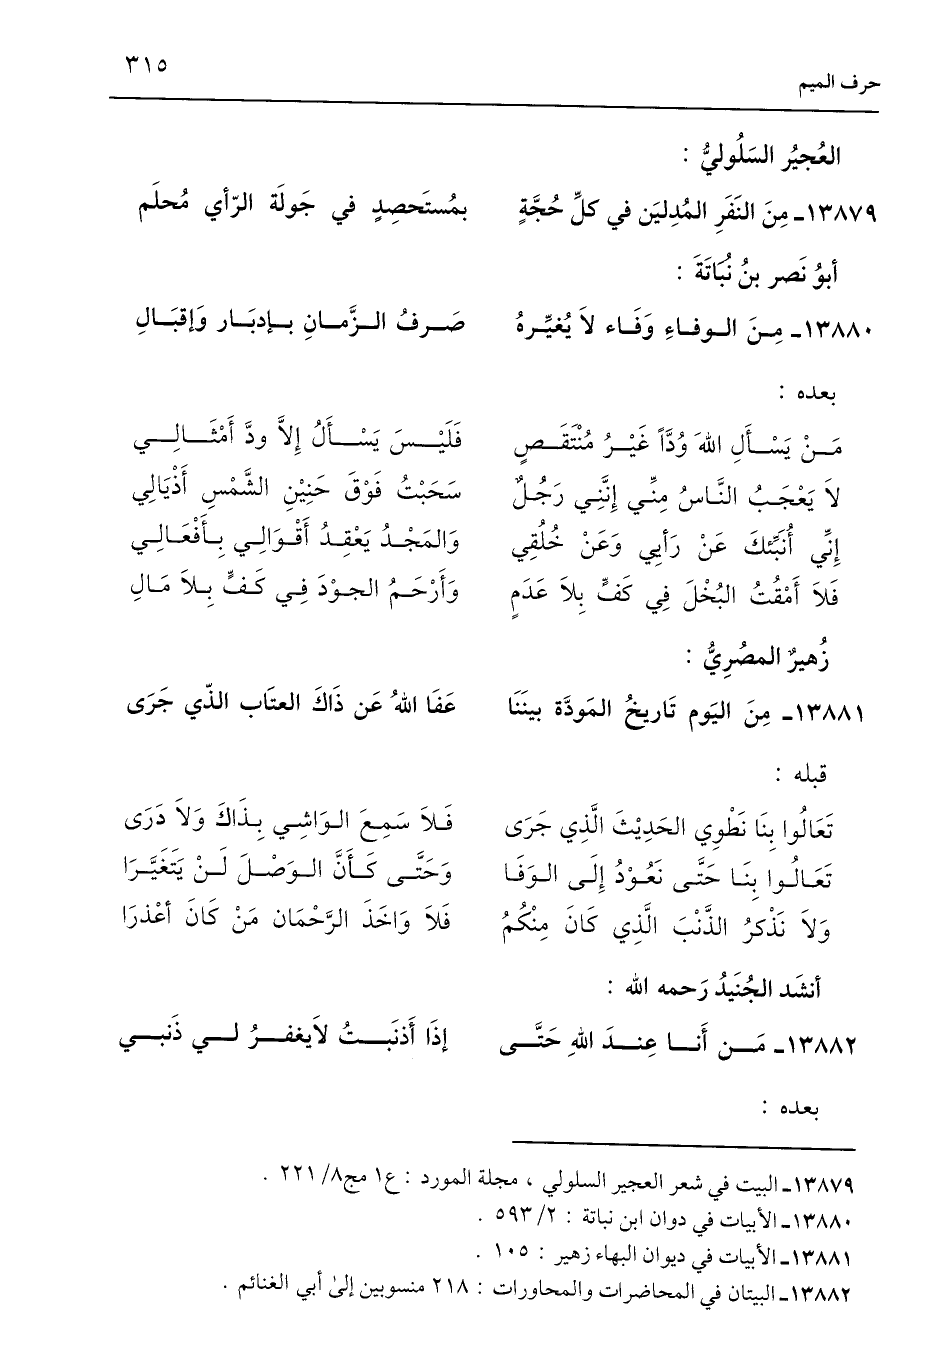 ٣١٥
حرف الميم
العُجيُر السَلُوليُّ :
١٣٨٧٩ـ مِنَ النَفَرِ المُدِليَن في كلِّ حُجَّةٍ بمُستَحصِدٍ في جَولَة الرّأي مُحلَم
أبوُ نَصر بنُ نُبَاتَةَ :
١٣٨٨٠ـ مِنَ الوفاءِ وَفَاء لاَ يُغيِّرهُ صَرفُ الزَّمانِ بإدبَار وَإقبَالِ
بعده :
مَنْ يَسْأَلِ اللهَ وُدَّاً غَيْرُ مُنْتَقَصٍ فَلَيْسَ يَسْأَلُ إلاَّ ودَّ أمْثَالِي
لاَ يَعْجَبُ النَّاسُ مِنِّي إنَّنِي رَجُلٌ سَحَبْتُ فَوْقَ حَنِيْنِ الشَّمْسِ أَذْيَالِي
إنِّي أُنَبِّئكَ عَنْ رَأيِي وَعَنْ خُلُقِي وَالمَجْدُ يَعْقِدُ أقْوَالِي بِأفْعَالِي
فَلاَ أمْقُتُ البُخْلَ فِي كَفٍّ بِلاَ عَدَمٍ وَأرْحَمُ الجوْدَ فِي كَفٍّ بِلاَ مَالِ
زُهيرٌ المصُرِيُّ :
١٣٨٨١ـ مِنَ اليَوم تَاريخُ المَودَّة بينَنَا عَفَا اللهُ عَن ذَاكَ العتَاب الذّي جَرَى
قبله :
تَعَالُوا بِنَا نَطْوِي الحَدِيْثَ الَّذِي جَرَى فَلاَ سَمِعَ الوَاشِي بِذَاكَ وَلاَ دَرَى
تَعَالُوا بِنَا حَتَّى نَعُوْدُ إلَى الوَفَا وَحَتَّى كَأنَّ الوَصْلَ لَنْ يَتَغَيَّرَا
وَلاَ نَذْكرُ الذَّنْبَ الَّذِي كَانَ مِنْكُمُ فَلاَ وَاخَذَ الرَّحْمَان مَنْ كَانَ أعْذرَا
أنشَد الجُنَيدُ رَحمه الله :
١٣٨٨٢ـ مَن أَنا عِندَ اللهِ حَتَّى إذَا أَذنَبتُ لاَيغفرُ لي ذَنبي
بعده :
١٣٨٧٩ـ البيت في شعر العجير السلولي ، مجلة المورد : ع١ مج٨/ ٢٢١ .
١٣٨٨٠ـ الأبيات في دوان ابن نباتة : ٢/ ٥٩٣ .
١٣٨٨١ـ الأبيات في ديوان البهاء زهير : ١٠٥ .
١٣٨٨٢ـ البيتان في المحاضرات والمحاورات : ٢١٨ منسوبين إلىٰ أبي الغنائم .